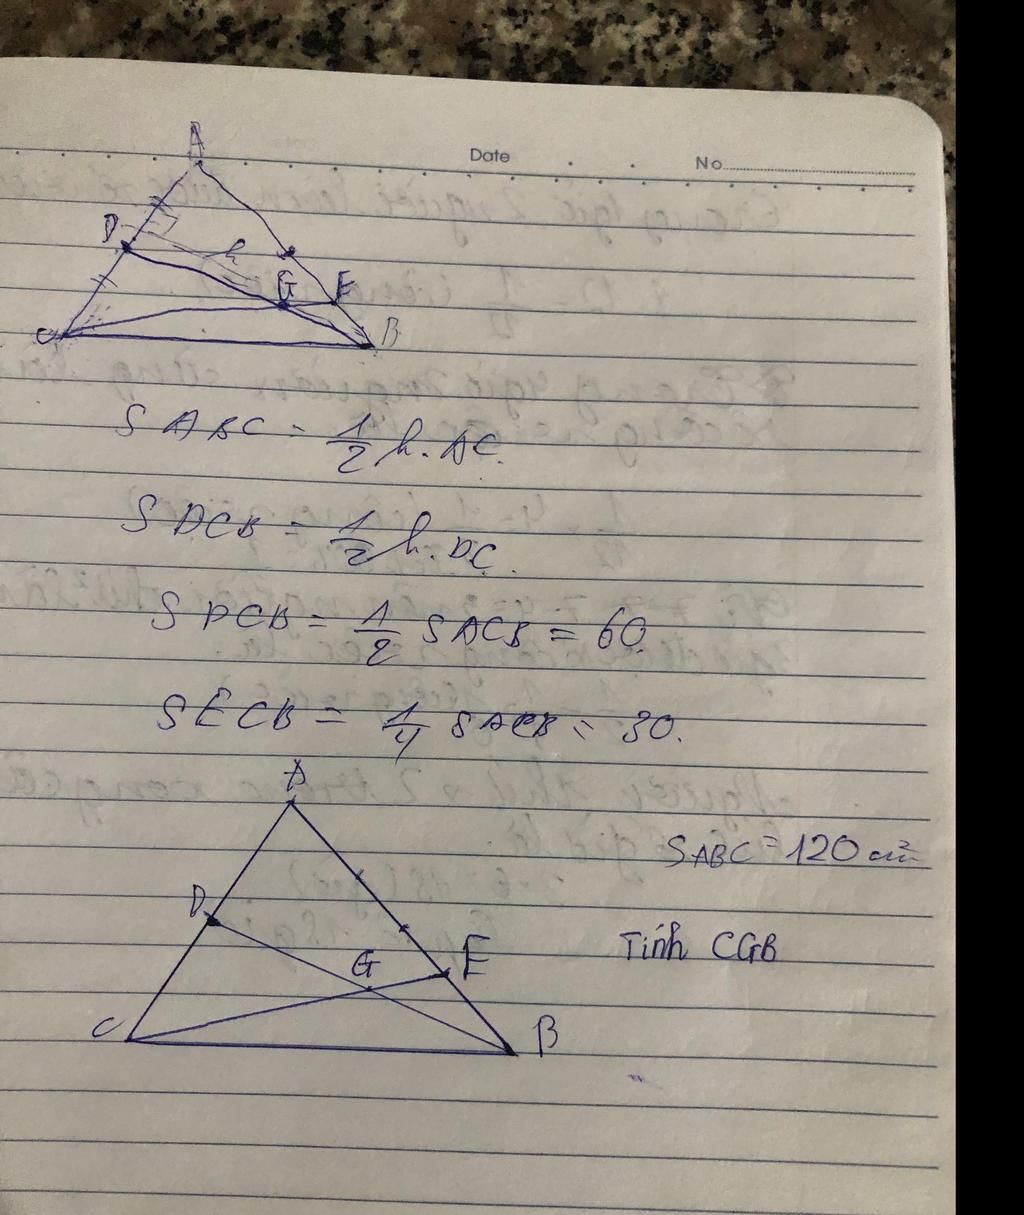 Date No
A
D h
G E
C B
S ABC = 1/2 h. AC.
S DCB = 1/2 h. DC.
S DCB = 1/2 S ACB = 60.
S ECB = 1/4 S ACB = 30.
A
SABC = 120 cm²
D
Tính CGB
G E
C B